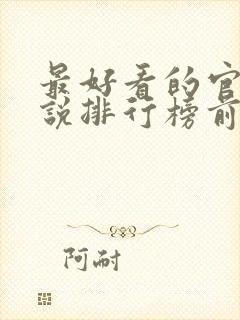 最好看的官
说排行榜前
阿耐